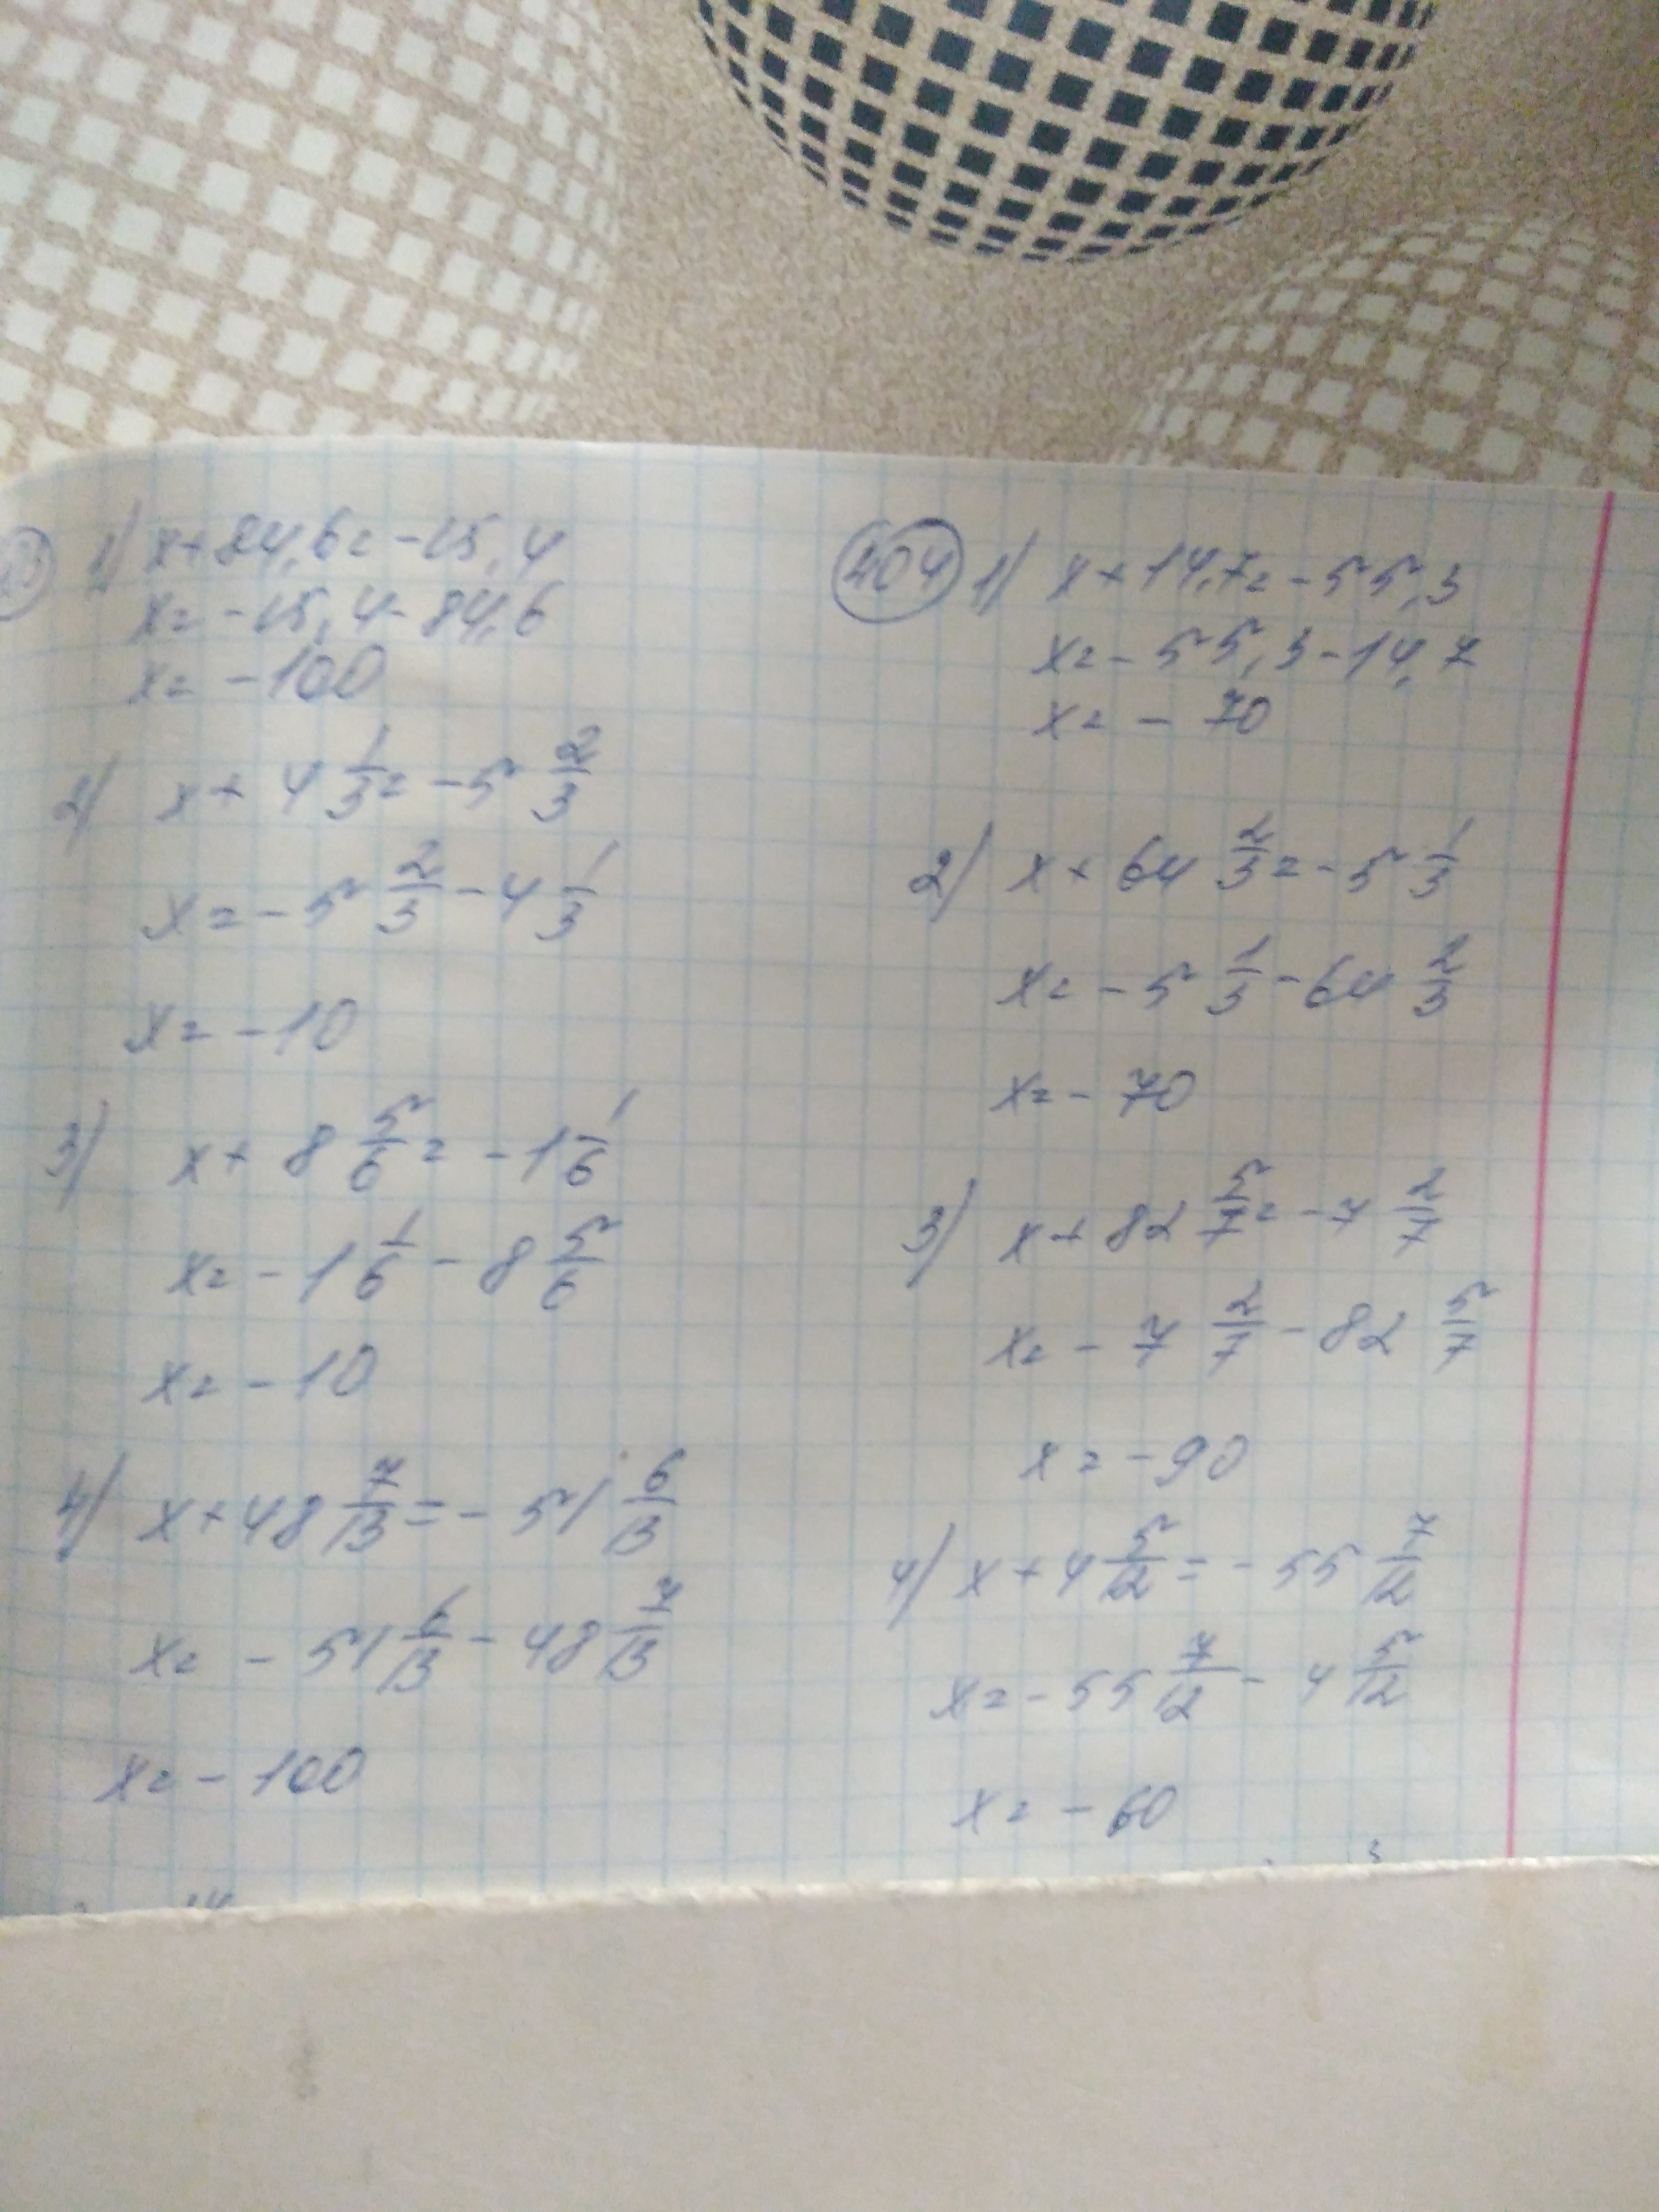 1) x+84,6=-15,4
x=-15,4-84,6
x=-100
2) x+4 1/3=-5 2/3
x=-5 2/3-4 1/3
x=-10
3) x+8 5/6=-1 1/6
x=-1 1/6-8 5/6
x=-10
4) x+48 7/13=-51 6/13
x=-51 6/13-48 7/13
x=-100
404 1) x+14,7=-55,3
x=-55,3-14,7
x=-70
2) x+64 2/3=-5 1/3
x=-5 1/3-64 2/3
x=-70
3) x+82 5/7=-7 2/7
x=-7 2/7-82 5/7
x=-90
4) x+4 5/12=-55 7/12
x=-55 7/12-4 5/12
x=-60